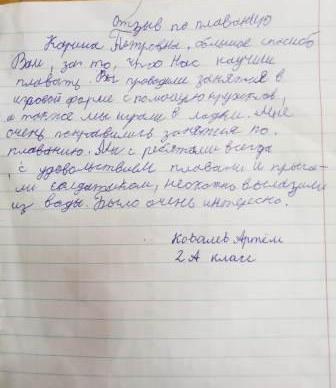 Отзыв по плаванию
Карина Петровна, большое спасибо
Вам, за то, что нас научили
плавать. Вы проводили занятия в
игровой форме с помощью кружков,
а также мы играли в ладки. Мне
очень понравились занятия по
плаванию. Мы с ребятами всегда
с удовольствием плавали и прыга-
ли солдатиком, неохотно вылазили
из воды. Было очень интересно.
Ковалев Артём
2 А класс